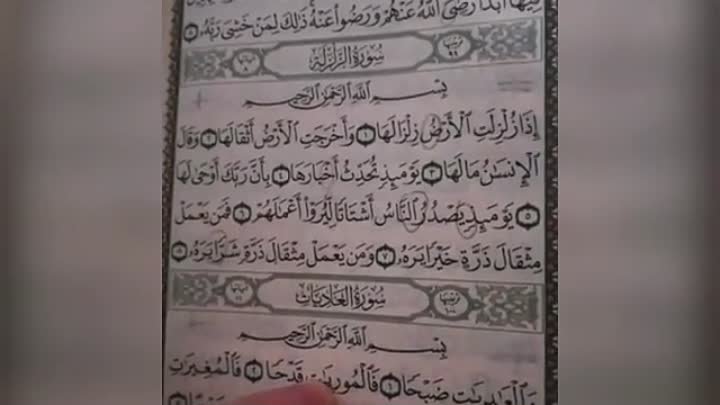 فِيهَا أَبَدًا رَّضِيَ ٱللَّهُ عَنْهُمْ وَرَضُوا۟ عَنْهُ ذَٰلِكَ لِمَنْ خَشِيَ رَبَّهُۥ ٨
سُورَةُ الزَّلْزَلَةِ
بِسْمِ ٱللَّهِ ٱلرَّحْمَٰنِ ٱلرَّحِيمِ
إِذَا زُلْزِلَتِ ٱلْأَرْضُ زِلْزَالَهَا ١ وَأَخْرَجَتِ ٱلْأَرْضُ أَثْقَالَهَا ٢ وَقَالَ
ٱلْإِنسَٰنُ مَا لَهَا ٣ يَوْمَئِذٍ تُحَدِّثُ أَخْبَارَهَا ٤ بِأَنَّ رَبَّكَ أَوْحَىٰ لَهَا
٥ يَوْمَئِذٍ يَصْدُرُ ٱلنَّاسُ أَشْتَاتًا لِّيُرَوْا۟ أَعْمَٰلَهُمْ ٦ فَمَن يَعْمَلْ
مِثْقَالَ ذَرَّةٍ خَيْرًا يَرَهُۥ ٧ وَمَن يَعْمَلْ مِثْقَالَ ذَرَّةٍ شَرًّا يَرَهُۥ ٨
سُورَةُ العَادِيَاتِ
بِسْمِ ٱللَّهِ ٱلرَّحْمَٰنِ ٱلرَّحِيمِ
وَٱلْعَٰدِيَٰتِ ضَبْحًا ١ فَٱلْمُورِيَٰتِ قَدْحًا ٢ فَٱلْمُغِيرَٰتِ